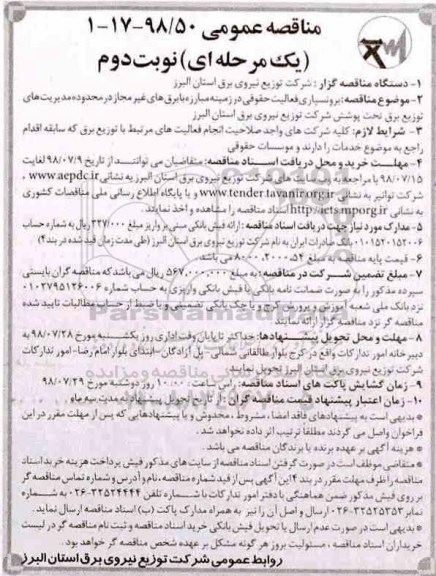 مناقصه عمومی ۹۸/۵۰-۱۷-۱
(یک مرحله ای) نوبت دوم
۱- دستگاه مناقصه گزار: شرکت توزیع نیروی برق استان البرز
۲- موضوع مناقصه: برونسپاری فعالیت حقوقی در زمینه مبارزه با برق های غیر مجاز در محدوده مدیریت های
توزیع برق تحت پوشش شرکت توزیع نیروی برق استان البرز
۳- شرایط لازم: کلیه شرکت های واجد صلاحیت انجام فعالیت های مرتبط با توزیع برق که سابقه اقدام
راجع به موضوع خدمات را دارند و موسسات حقوقی
۴- مهلت خرید و محل دریافت اسناد مناقصه: متقاضیان می توانند از تاریخ ۹۸/۰۷/۹ لغایت
۹۸/۰۷/۱۵ با مراجعه به وب سایت های شرکت توزیع نیروی برق استان البرز به نشانی www.aepdc.ir ,
شرکت توانیر به نشانی www.tender.tavanir.org.ir و یا پایگاه اطلاع رسانی ملی مناقصات کشوری
به نشانی http://iets.mporg.ir اسناد مناقصه را مشاهده و اخذ نمایند.
۵- مدارک مورد نیاز جهت دریافت اسناد مناقصه: ارائه فیش بانکی مبنی بر واریز مبلغ ۳۲۷/۰۰۰ ریال به شماره حساب
۰۱۰۱۵۲۰۱۵۲۰۰۶ بانک صادرات ایران به نام شرکت توزیع نیروی برق استان البرز (طی مدت زمان قید شده در بند ۴)
۶- قیمت پایه مناقصه به مبلغ می باشد.
۷- مبلغ تضمین شرکت در مناقصه: به مبلغ ۵۶۷,۰۰۰,۰۰۰ ریال می باشد که مناقصه گران بایستی
سپرده مذکور را به صورت ضمانت نامه بانکی یا فیش بانکی واریزی به حساب شماره ۰۱۰۲۷۹۵۱۲۶۰۰۶
نزد بانک ملی شعبه آموزش و پرورش کرج، یا چک بانکی تضمینی و یا ضبط از حساب مطالبات تایید شده
مناقصه گر نزد مناقصه گزار ارائه نمایند.
۸- مهلت و محل تحویل پیشنهادها: حداکثر تا پایان وقت اداری روز یکشنبه مورخ ۹۸/۰۷/۲۸ به
دبیرخانه امور تدارکات واقع در کرج بلوار طالقانی شمالی - پل آزادگان - ابتدای بلوار امام رضا - امور تدارکات
شرکت توزیع نیروی برق استان البرز تحویل نمایند.
۹- زمان گشایش پاکت های اسناد مناقصه: راس ساعت ۱۰:۰۰ روز دوشنبه مورخ ۹۸/۰۷/۲۹
۱۰- زمان اعتبار پیشنهاد قیمت مناقصه گران از تاریخ تحویل پیشنهاد به مدت سه ماه
* بدیهی است به پیشنهادهای فاقد امضا، مشروط، مخدوش و یا پیشنهادهایی که پس از مهلت مقرر در این
فراخوان واصل می گردند مطلقا ترتیب اثر داده نخواهد شد.
* هزینه آگهی بر عهده برنده یا برندگان مناقصه می باشد.
* متقاضی موظف است در صورت گرفتن اسناد مناقصه از سایت های مذکور فیش پرداخت هزینه خرید اسناد
مناقصه را ظرف مهلت مقرر در بند ۴ این آگهی پس از قید شماره مناقصه، نام و آدرس و شماره تماس مناقصه گر
بر روی فیش مذکور ضمن هماهنگی با دفتر امور تدارکات با شماره تلفن ۳۲۵۲۴۴۴۴-۰۲۶ به شماره
نمابر ۳۲۵۲۵۳۵۳-۰۲۶ ارسال و اصل آن را نیز به همراه مدارک پاکت (ب) اسناد مناقصه ارسال نماید.
* بدیهی است در صورت عدم ارسال یا تحویل فیش بانکی خرید اسناد مناقصه و ثبت نام مناقصه گر در لیست
خریداران اسناد مناقصه، مسئولیت بروز هر گونه مشکل بر عهده شخص مناقصه گر خواهد بود.
روابط عمومی شرکت توزیع نیروی برق استان البرز